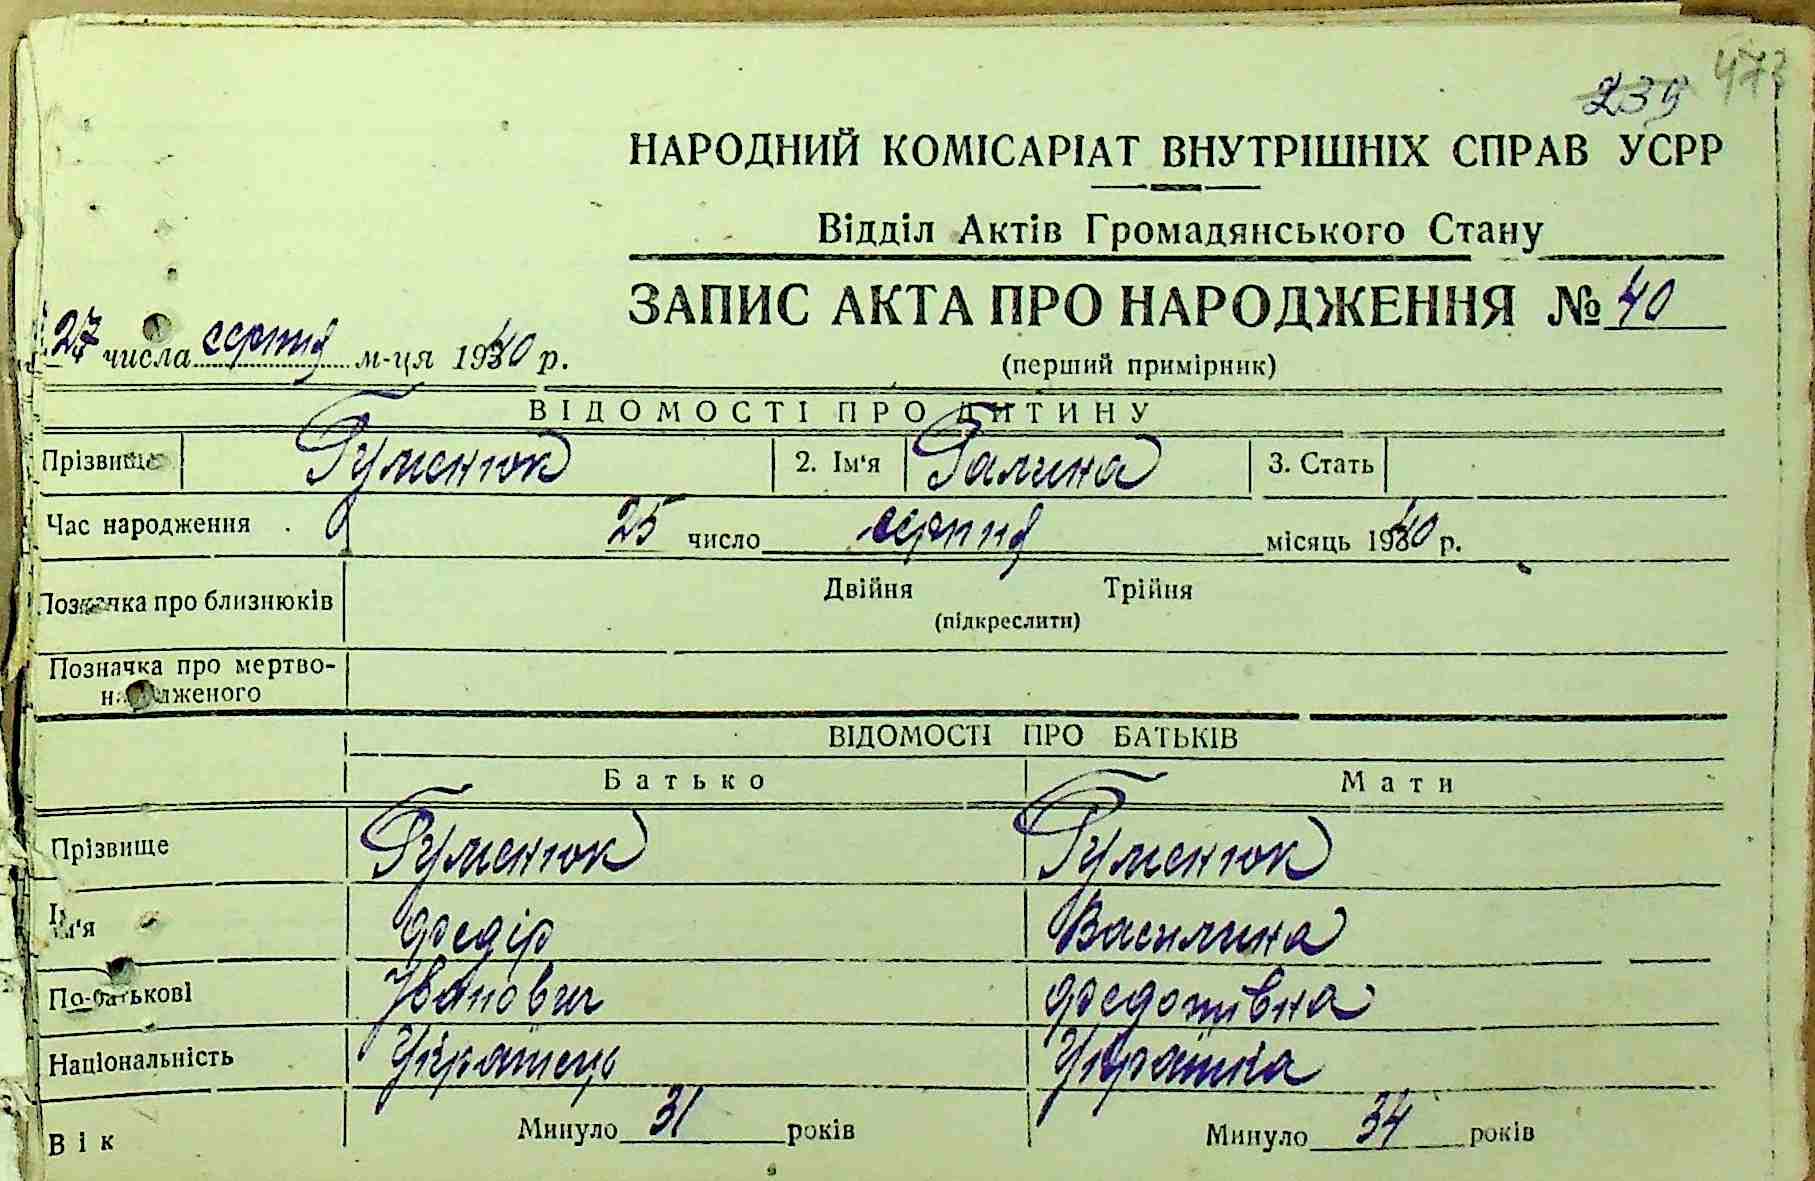 473
239
НАРОДНИЙ КОМІСАРІАТ ВНУТРІШНІХ СПРАВ УСРР
Відділ Актів Громадянського Стану
ЗАПИС АКТА ПРО НАРОДЖЕННЯ № 40
27 числа серпня м-ця 1940 р.
(перший примірник)
ВІДОМОСТІ ПРО ДИТИНУ
Прізвище Гуменюк 2. Ім'я Галина 3. Стать
Час народження 25 число серпня місяць 1940 р.
Позначка про близнюків Двійня Трійня
(підкреслити)
Позначка про мертво-
народженого
ВІДОМОСТІ ПРО БАТЬКІВ
Батько Мати
Прізвище Гуменюк Гуменюк
Ім'я Федір Василина
По-батькові Іванович Федотівна
Національність Українець Українка
Вік Минуло 31 років Минуло 34 років